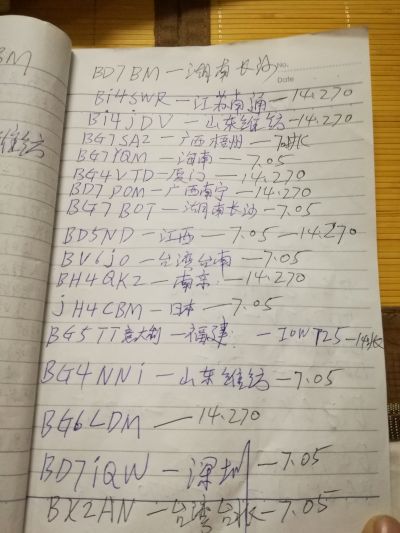 BM
No.
Date
BD7BM—湖南长沙
Bi4SWR—江苏南通—14.270
Bi4jDV—山东维坊—14.270
BG7SA2—广西梧州—
BG7IQM—海南—7.05
BG4VTD—厦门—14.270
BD7PQM—广西南宁—14.270
BG7BOT—湖南长沙—7.05
BD5ND—江西—7.05—14.270
BV6jo—台湾台南—7.05
BH4QK2—南京—14.270
jH4CBM—日本—7.05
BG5TT意大利—福建—IOWT25—
BG4NNi—山东维坊—7.05
BG6LDM—14.270
BD7iQW—深圳—7.05
BX2AN—台湾台北—7.05